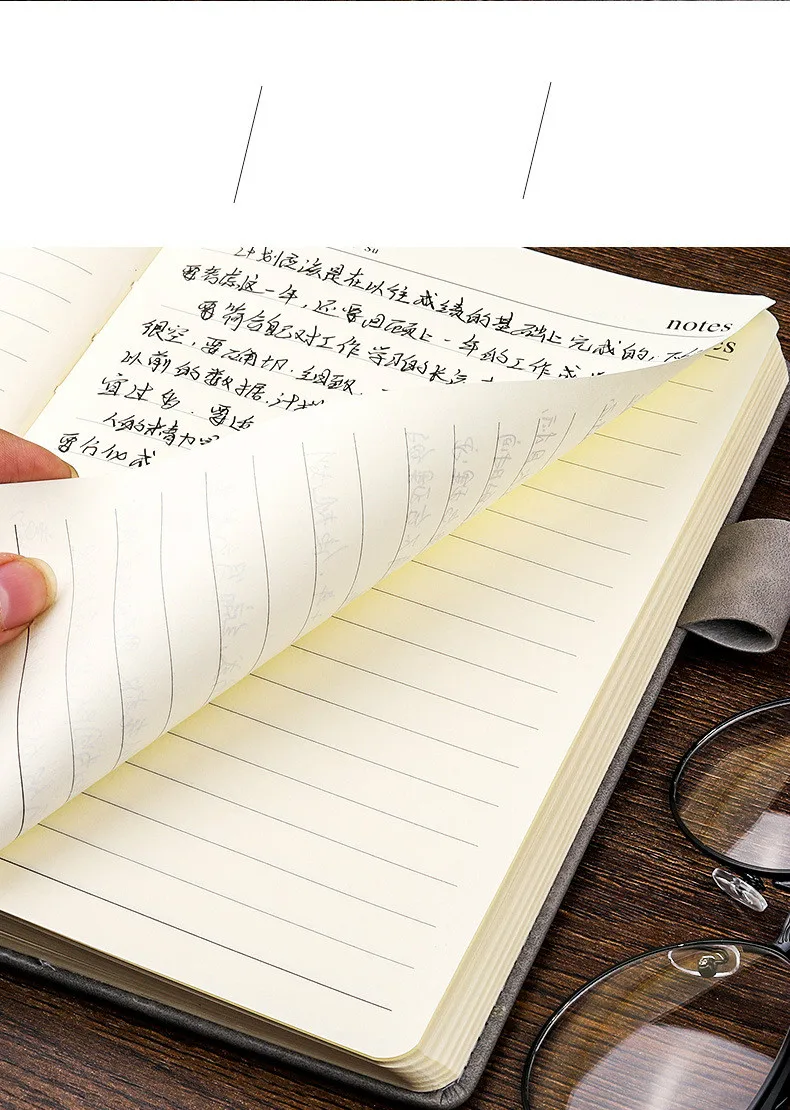 su
notes
es
计划应该是在以往成绩的基础上完成的,不
要考虑这一年,还要回顾上一年的工作成
要符合自己对工作学习的长远
很空,要确切.细致.
以前的数据.计划
宜过多.要
人的精力
要分